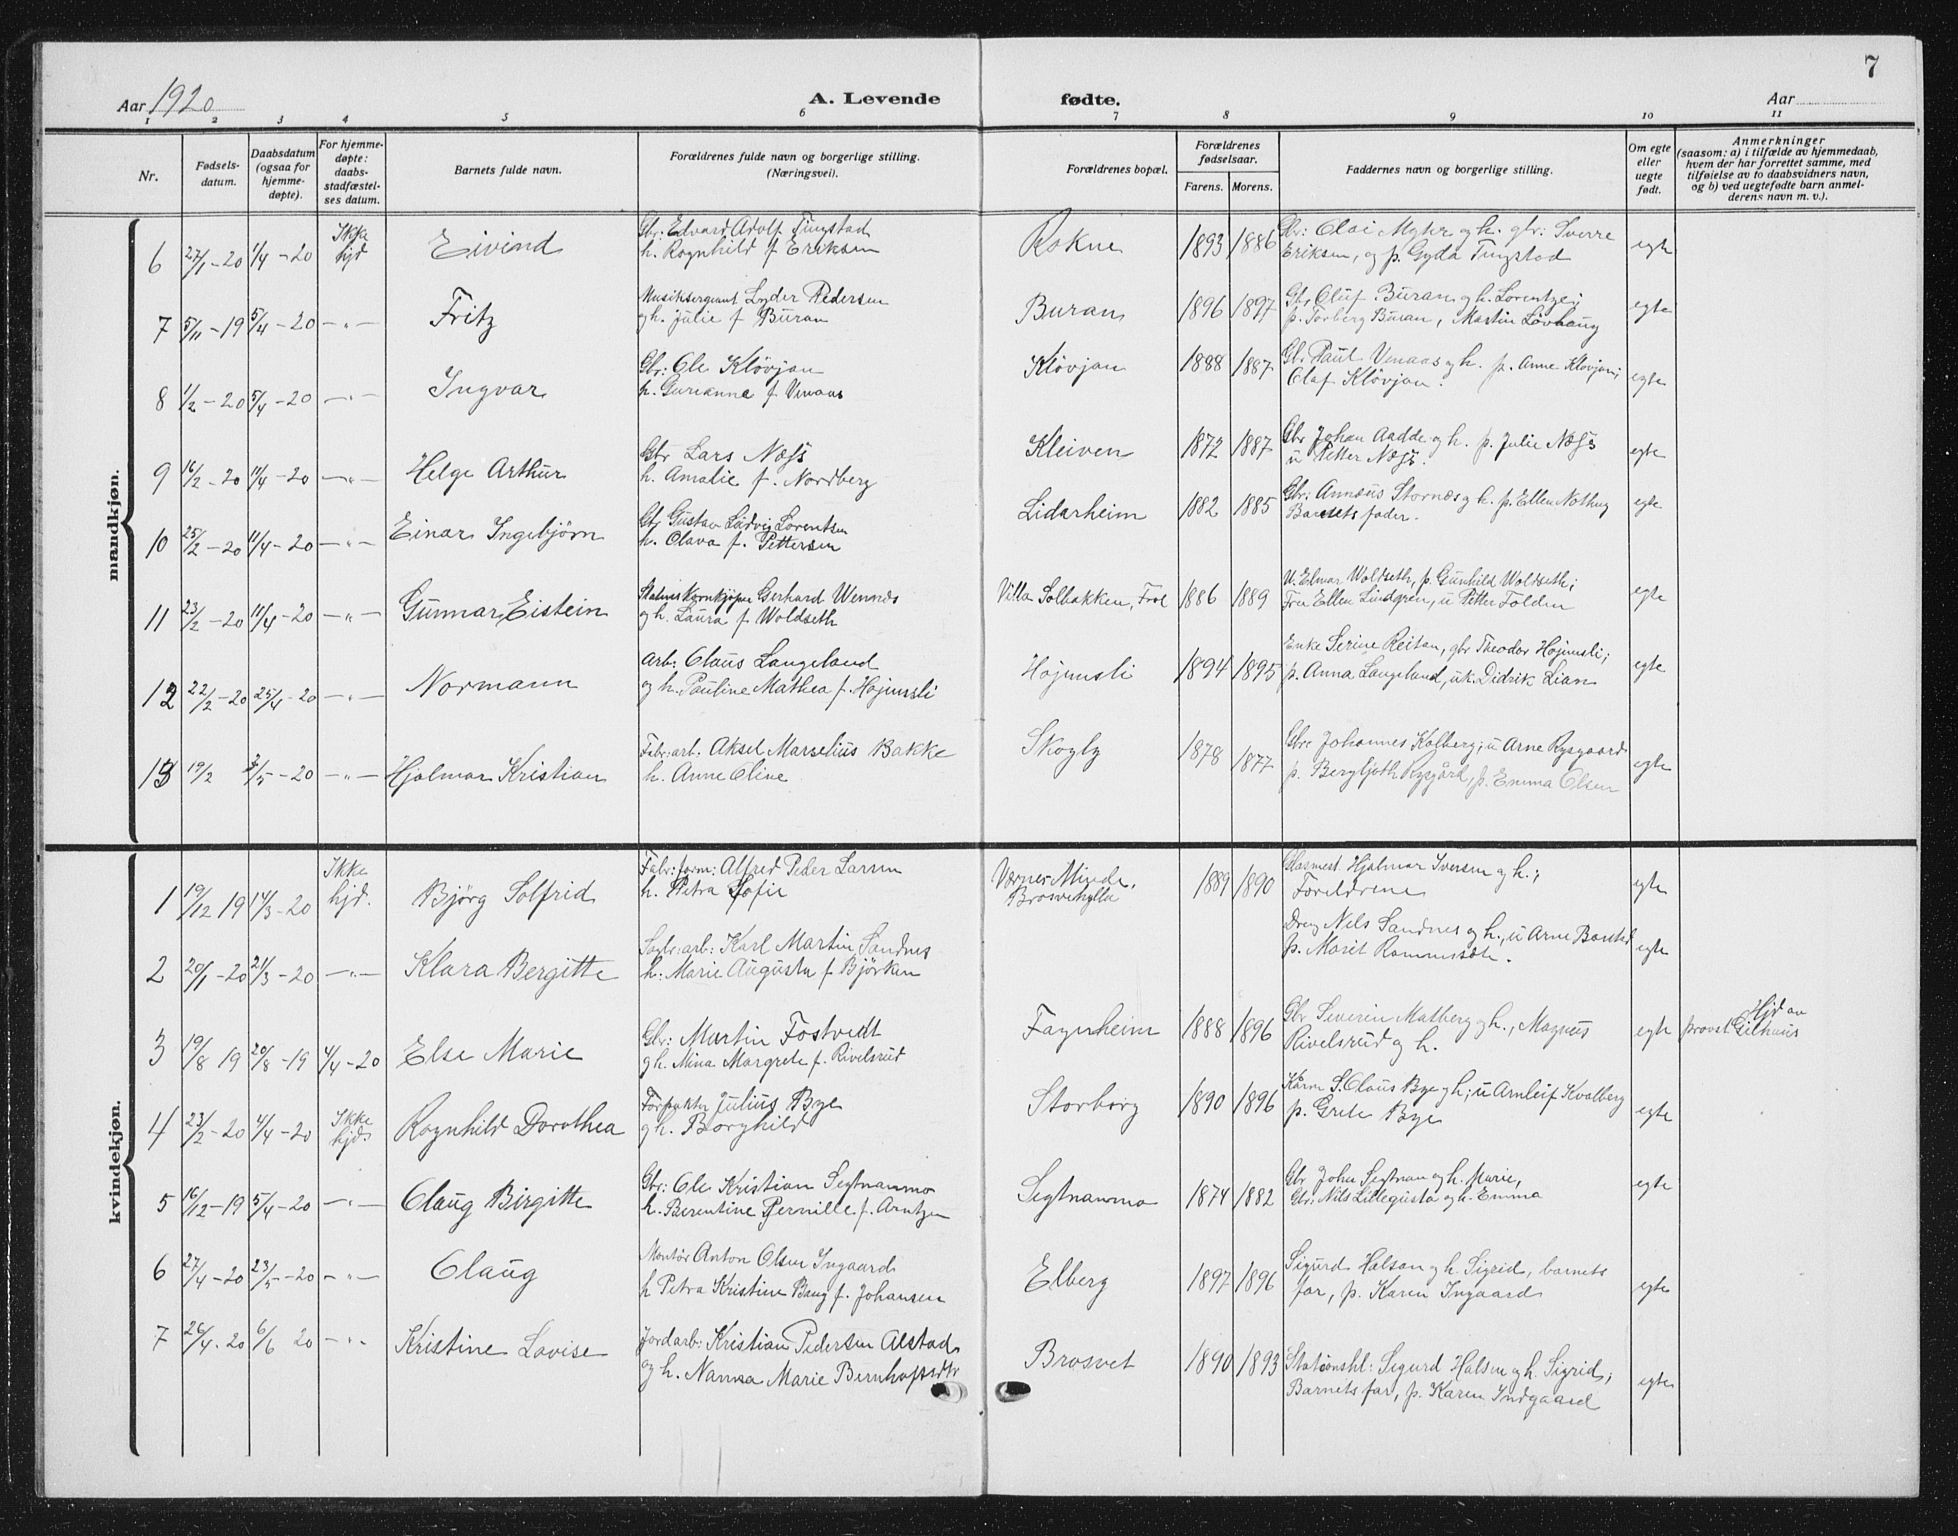 7
Aar 1920 A. Levende fødte. Aar
1 2 3 4 5 6 7 8 9 10 11
Nr.
Fødsels-
datum.
Daabsdatum
(ogsaa for
hjemme-
døpte).
For hjemme-
døpte:
daabs-
stadfæstel-
ses datum.
Barnets fulde navn.
Forældrenes fulde navn og borgerlige stilling.
(Næringsvei).
Forældrenes bopæl.
Forældrenes
fødselsaar.
Farens. Morens.
Faddernes navn og borgerlige stilling.
Om egte
eller
uegte
født.
Anmerkninger
(saasom: a) i tilfælde av hjemmedaab,
hvem der har forrettet samme, med
tilføielse av to daabsvidners navn,
og b) ved uegtefødte barn anmel-
derens navn m. v.).
mandkjøn.
6 27/1-20 1/4-20 Ikke hjd. Eivind
Gbr: Edvard Adolf Tingstad
h. Ragnhild f Eriksen
Rokne 1893 1886
Gbr: Olai Myhr og h. gbr: Sverre
Eriksen, og p. Gyda Tingstad
egte
7 5/11-19 5/4-20 -"- Fritz
Musiksergeant Lyder Pedersen
og h. Julie f Buran
Buran 1896 1897
Gbr Oluf Buran og h. Lorentze;
p. Torberg Buran, Martin Lövhaug
egte
8 1/2-20 5/4-20 -"- Ingvar
Gbr: Ole Klövjan
h. Gurianna f Venaas
Klövjan 1888 1887
Gb. Paul Venaas og h. p. Anne Klövjan;
Olaf Klövjan.
egte
9 16/2-20 11/4-20 -"- Helge Arthur
Gbr Lars Næss
h. Amalie f. Nordberg
Kleiven 1872 1887
Gbr Johan Aadde og h. p. Julie Næss
u Petter Næss.
egte
10 25/2-20 11/4-20 -"- Einar Ingebjörn
Gbr Gustav Ludvig Lorentsen
h. Olava f. Pettersen
Lidarheim 1882 1885
Gbr: Annæus Stornæs og h. p. Ellen Nothug
Barnets fader.
egte
11 23/2-20 11/4-20 -"- Gunnar Eistein
Statens Kornkjøper Gerhard Wennes
og h. Laura f Woldseth
Villa Solbakken, Frol 1886 1889
U. Elmar Woldseth, p. Gunhild Woldseth;
Fru Ellen Lindgren, u Petter Folden
egte
12 22/2-20 25/4-20 -"- Normann
Arb: Claus Langeland
og h. Pauline Mathea f. Hojumsli
Hojumsli 1894 1895
Enke Serine Reitan, gbr Theodor Hojumsli;
p. Anna Langeland, uk. Didrik Lian
egte
13 19/2 2/5-20 -"- Hjalmar Kristian
Fabr: arb. Aksel Marselius Bakke
h. Anne Oline
Skogly 1878 1877
Gbr Johannes Kolberg; u Arne Rysgaard
p. Bergljoth Rysgård, p. Emma Olsen
egte
kvindekjøn.
1 19/12 19 14/3-20 Ikke hjd. Björg Solfrid
Fabr: form: Alfred Peder Larsen
h. Petra Sofie
Værnes Minde,
Brosvehylla
1889 1890
Glasmest. Hjalmar Iversen og h.;
Foreldrene
egte
2 20/1-20 21/3-20 -"- Klara Bergitte
Sagbr: arb: Karl Martin Sandnes
h: Marie Augusta f Björken
Dreng Nils Sandnes og h., u Arne Barstad
p. Marit Rammesæte.
egte
3 19/8 19 20/8-19 4/4-20 Else Marie
Gbr: Martin Fostvedt
og h. Mina Margrete f. Rivelsrud
Fagerheim 1888 1896
Gbr Severin Matberg og h., Magnus
Rivelsrud og h.
egte
Hjd av
provst Gilhuus
4 23/2-20 4/4-20 Ikke hjd. Ragnhild Dorothea
Forpakter Julius Bye
og h. Borghild
Storborg 1890 1896
Karm S. Claus Bye og h; u Arnleif Kvalberg
p. Grete Bye
egte
5 16/12-19 5/4-20 -"- Olaug Birgitte
Gbr: Ole Kristian Segtnanmo
h. Berentine Pernille f. Arntzen
Segtnanmo 1874 1882
Gbr John Segtnan og h. Marie,
Gbr: Nils Lillegusta og h. Emma
egte
6 27/4-20 23/5-20 -"- Olaug
Montör Anton Olsen Ingaard
h Petra Kristine Bang f. Johansen
Elberg 1897 1896
Sigurd Halsan og h. Sigrid, barnets
far, p. Karen Ingaard
egte
7 26/4-20 6/6 20 -"- Kristine Lovise
Jordarb: Kristian Pedersen Alstad
og h. Nanna Marie Bernhofsdtr
Brosvet 1890 1893
Stationshl: Sigurd Halsen og h. Sigrid;
Barnets far, p. Karen Indgaard
egte